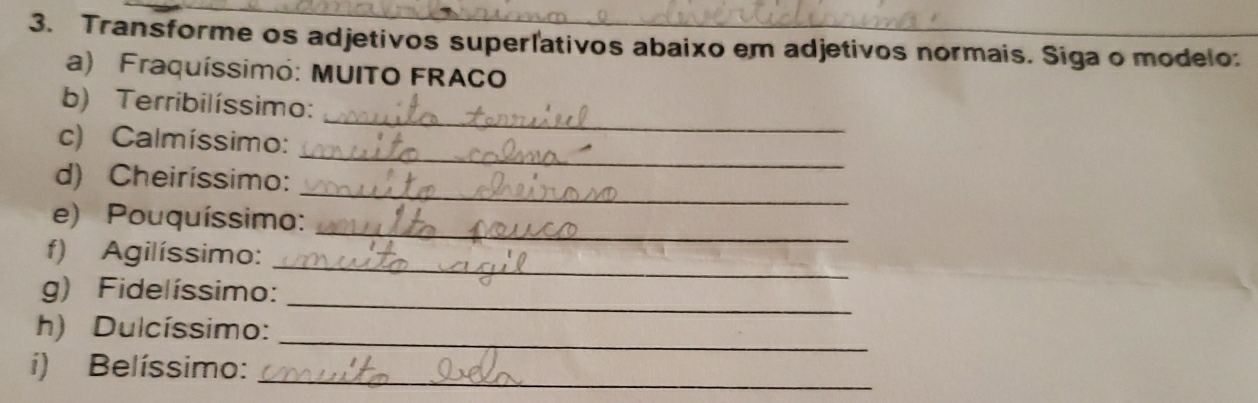 e amabilíssimo e divertidíssima.
3. Transforme os adjetivos superlativos abaixo em adjetivos normais. Siga o modelo:
a) Fraquíssimo: MUITO FRACO
b) Terribilíssimo: muito terrivel
c) Calmíssimo: muito calma
d) Cheiríssimo: muito cheiroso
e) Pouquíssimo: muito pouco
f) Agilíssimo: muito agil
g) Fidelíssimo:
h) Dulcíssimo:
i) Belíssimo: muito bela